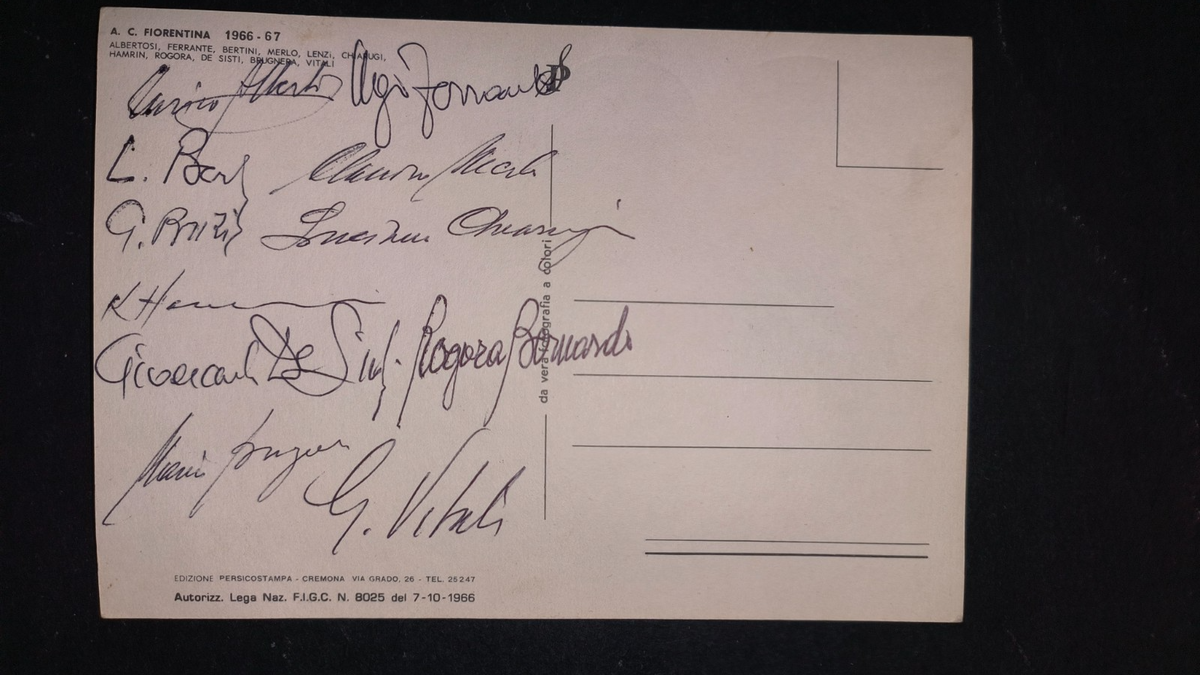 A. C. FIORENTINA 1966 - 67
ALBERTOSI, FERRANTE, BERTINI, MERLO, LENZI, CHIARUGI,
HAMRIN, ROGORA, DE SISTI, BRUGNERA, VITALI
Enrico Albertosi Ugo Ferrante
L. Claudio Merlo
G. Luciano Chiarugi
K Hamrin
Giancarlo De Sisti Rogora Bernardo
Mario Brugnera
G. Vitali
da vera fotografia a colori
EDIZIONE PERSICOSTAMPA - CREMONA VIA GRADO, 26 - TEL. 25247
Autorizz. Lega Naz. F.I.G.C. N. 8025 del 7-10-1966